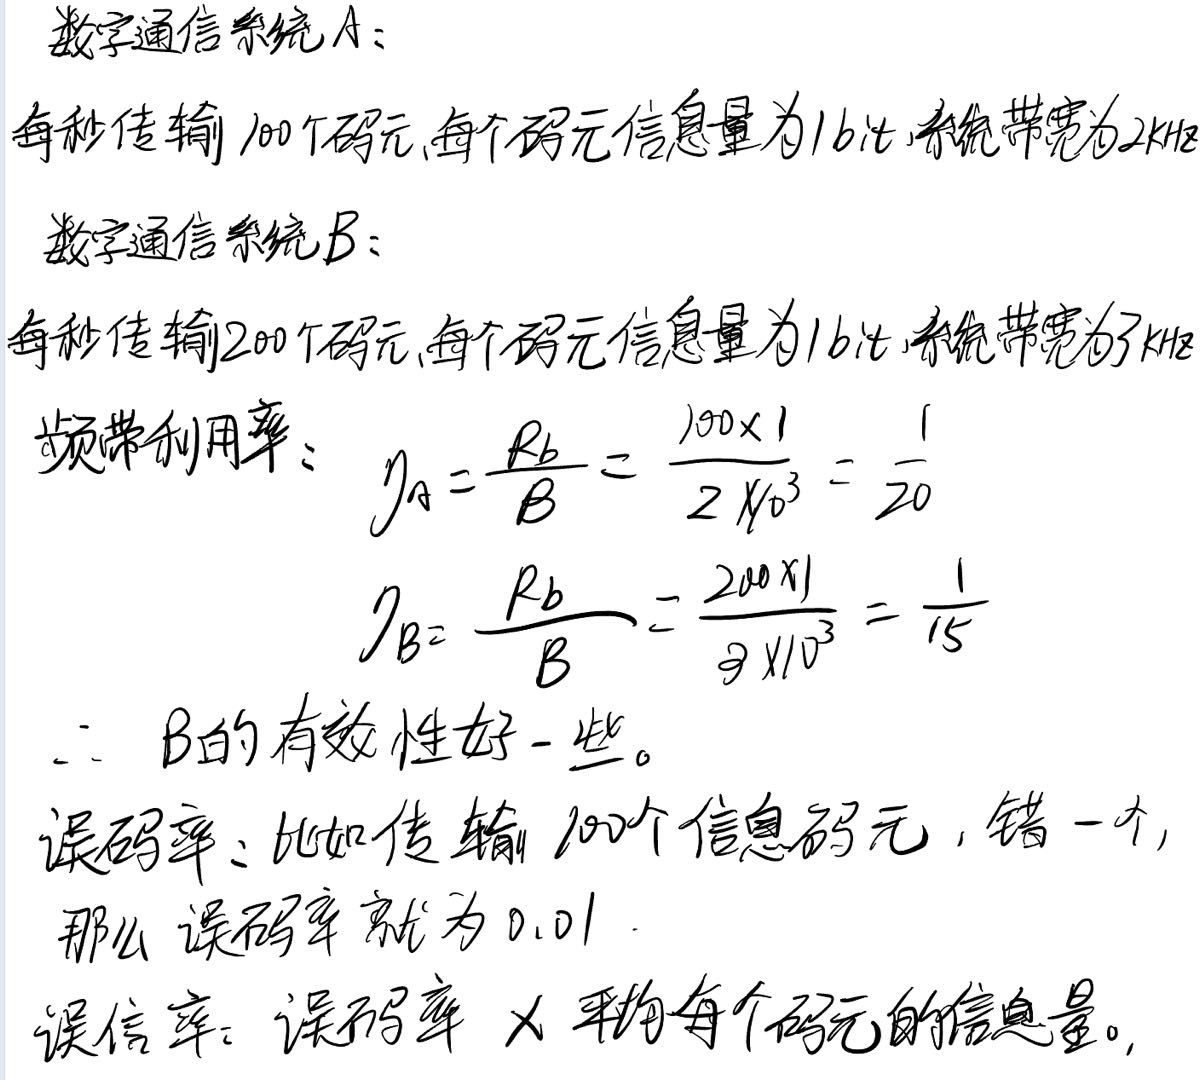 数字通信系统A：
每秒传输100个码元，每个码元信息量为1bit，系统带宽为2KHZ
数字通信系统B：
每秒传输200个码元，每个码元信息量为1bit，系统带宽为3KHZ
频带利用率：
ηA = Rb/B = 100×1/2×10³ = 1/20
ηB = Rb/B = 200×1/3×10³ = 1/15
∴ B的有效性好一些。
误码率：比如传输100个信息码元，错一个，
那么误码率就为0.01.
误信率：误码率 × 平均每个码元的信息量。,